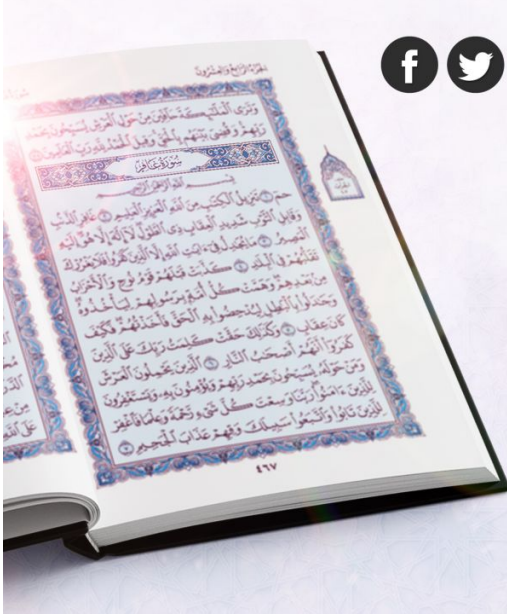 الجزء الرابع والعشرون
وَتَرَى الْمَلَٰئِكَةَ حَافِّينَ مِنْ حَوْلِ الْعَرْشِ يُسَبِّحُونَ بِحَمْدِ
رَبِّهِمْ وَقُضِيَ بَيْنَهُم بِالْحَقِّ وَقِيلَ الْحَمْدُ لِلَّهِ رَبِّ الْعَٰلَمِينَ ٧٥
سُورَةُ غَافِرٍ
بِسْمِ اللَّهِ الرَّحْمَٰنِ الرَّحِيمِ
حمٓ ١ تَنزِيلُ الْكِتَٰبِ مِنَ اللَّهِ الْعَزِيزِ الْعَلِيمِ ٢ غَافِرِ الذَّنۢبِ
وَقَابِلِ التَّوْبِ شَدِيدِ الْعِقَابِ ذِي الطَّوْلِ لَآ إِلَٰهَ إِلَّا هُوَ إِلَيْهِ
الْمَصِيرُ ٣ مَا يُجَٰدِلُ فِيٓ ءَايَٰتِ اللَّهِ إِلَّا الَّذِينَ كَفَرُوا فَلَا يَغْرُرْكَ
تَقَلُّبُهُمْ فِي الْبِلَٰدِ ٤ كَذَّبَتْ قَبْلَهُمْ قَوْمُ نُوحٍ وَالْأَحْزَابُ
مِنۢ بَعْدِهِمْ وَهَمَّتْ كُلُّ أُمَّةٍۭ بِرَسُولِهِمْ لِيَأْخُذُوهُ
وَجَٰدَلُوا بِالْبَٰطِلِ لِيُدْحِضُوا بِهِ الْحَقَّ فَأَخَذْتُهُمْ فَكَيْفَ
كَانَ عِقَابِ ٥ وَكَذَٰلِكَ حَقَّتْ كَلِمَتُ رَبِّكَ عَلَى الَّذِينَ
كَفَرُوٓا أَنَّهُمْ أَصْحَٰبُ النَّارِ ٦ الَّذِينَ يَحْمِلُونَ الْعَرْشَ
وَمَنْ حَوْلَهُ يُسَبِّحُونَ بِحَمْدِ رَبِّهِمْ وَيُؤْمِنُونَ بِهِ وَيَسْتَغْفِرُونَ
لِلَّذِينَ ءَامَنُوا رَبَّنَا وَسِعْتَ كُلَّ شَيْءٍ رَّحْمَةً وَعِلْمًا فَاغْفِرْ
لِلَّذِينَ تَابُوا وَاتَّبَعُوا سَبِيلَكَ وَقِهِمْ عَذَابَ الْجَحِيمِ ٧
٤٦٧